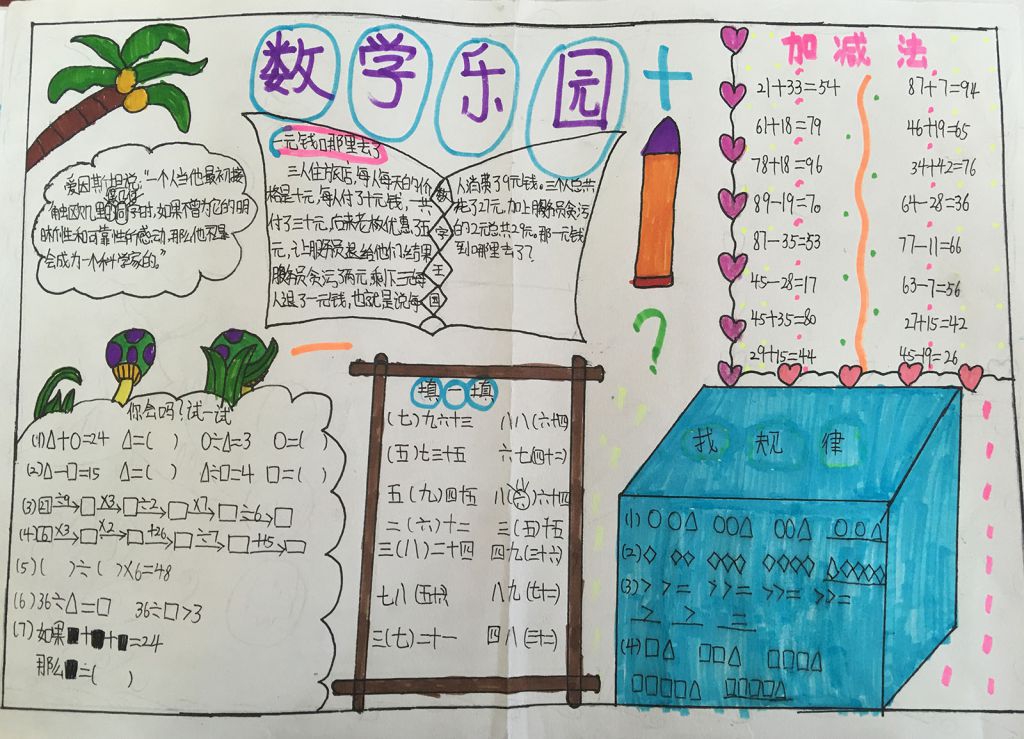 数学乐园
+
加减法
21+33=54
61+18=79
78+18=96
89-19=70
87-35=53
45-28=17
45+35=80
29+15=44
87+7=94
46+19=65
34+42=76
64-28=36
77-11=66
63-7=56
27+15=42
45-19=26
爱因斯坦说:"一个人当他最初接
触欧几里的何学时,如果不曾为它的明
晰性和可靠性所感动,那么他不是
会成为一个科学家的。"
一元钱口哪里去了
三人住旅店,每人每天的价
格是十元,每人付了十元钱,一共
付了三十元,后来老板优惠了五
元,让服务员退给他们,结果
服务员贪污了两元,剩下三元每
人退了一元钱,也就是说每
数
字
王
国
人消费了9元钱。三个人总共
花了27元,加上服务员贪污
的2元总共29元。那一元钱
到哪里去了?
?
你会吗?试一试
(1)△+○=24 △=( ) ○÷△=3 ○=( )
(2)△-□=15 △=( ) △÷□=4 □=( )
÷9 □ ×3 □ ÷2 □ ×7 □ ÷6 □
×3 □ ×2 □ +26 □ ÷7 □ +5 □
(5)( )÷( )×6=48
(6)36÷△=□ 36÷□>3
(7)如果■+■+■=24
那么■=( )
填一填
(七)九六十三 八八(六十四)
(五)七三十五 六七(四十二)
五(九)四十五 八(八)六十四
二(六)十二 三(五)十五
三(八)二十四 四九(三十六)
七八(五十六) 八九(七十二)
三(七)二十一 四八(三十二)
找规律
(1)○○△ ○○△ ○○△ ○○△
(2)◇ ◇◇ ◇◇◇ ◇◇◇◇ ◇◇◇◇◇
(3)>>= >>= >>= >>=
> > =
(4)□△ □□△ □□□△
□□□□△ □□□□△